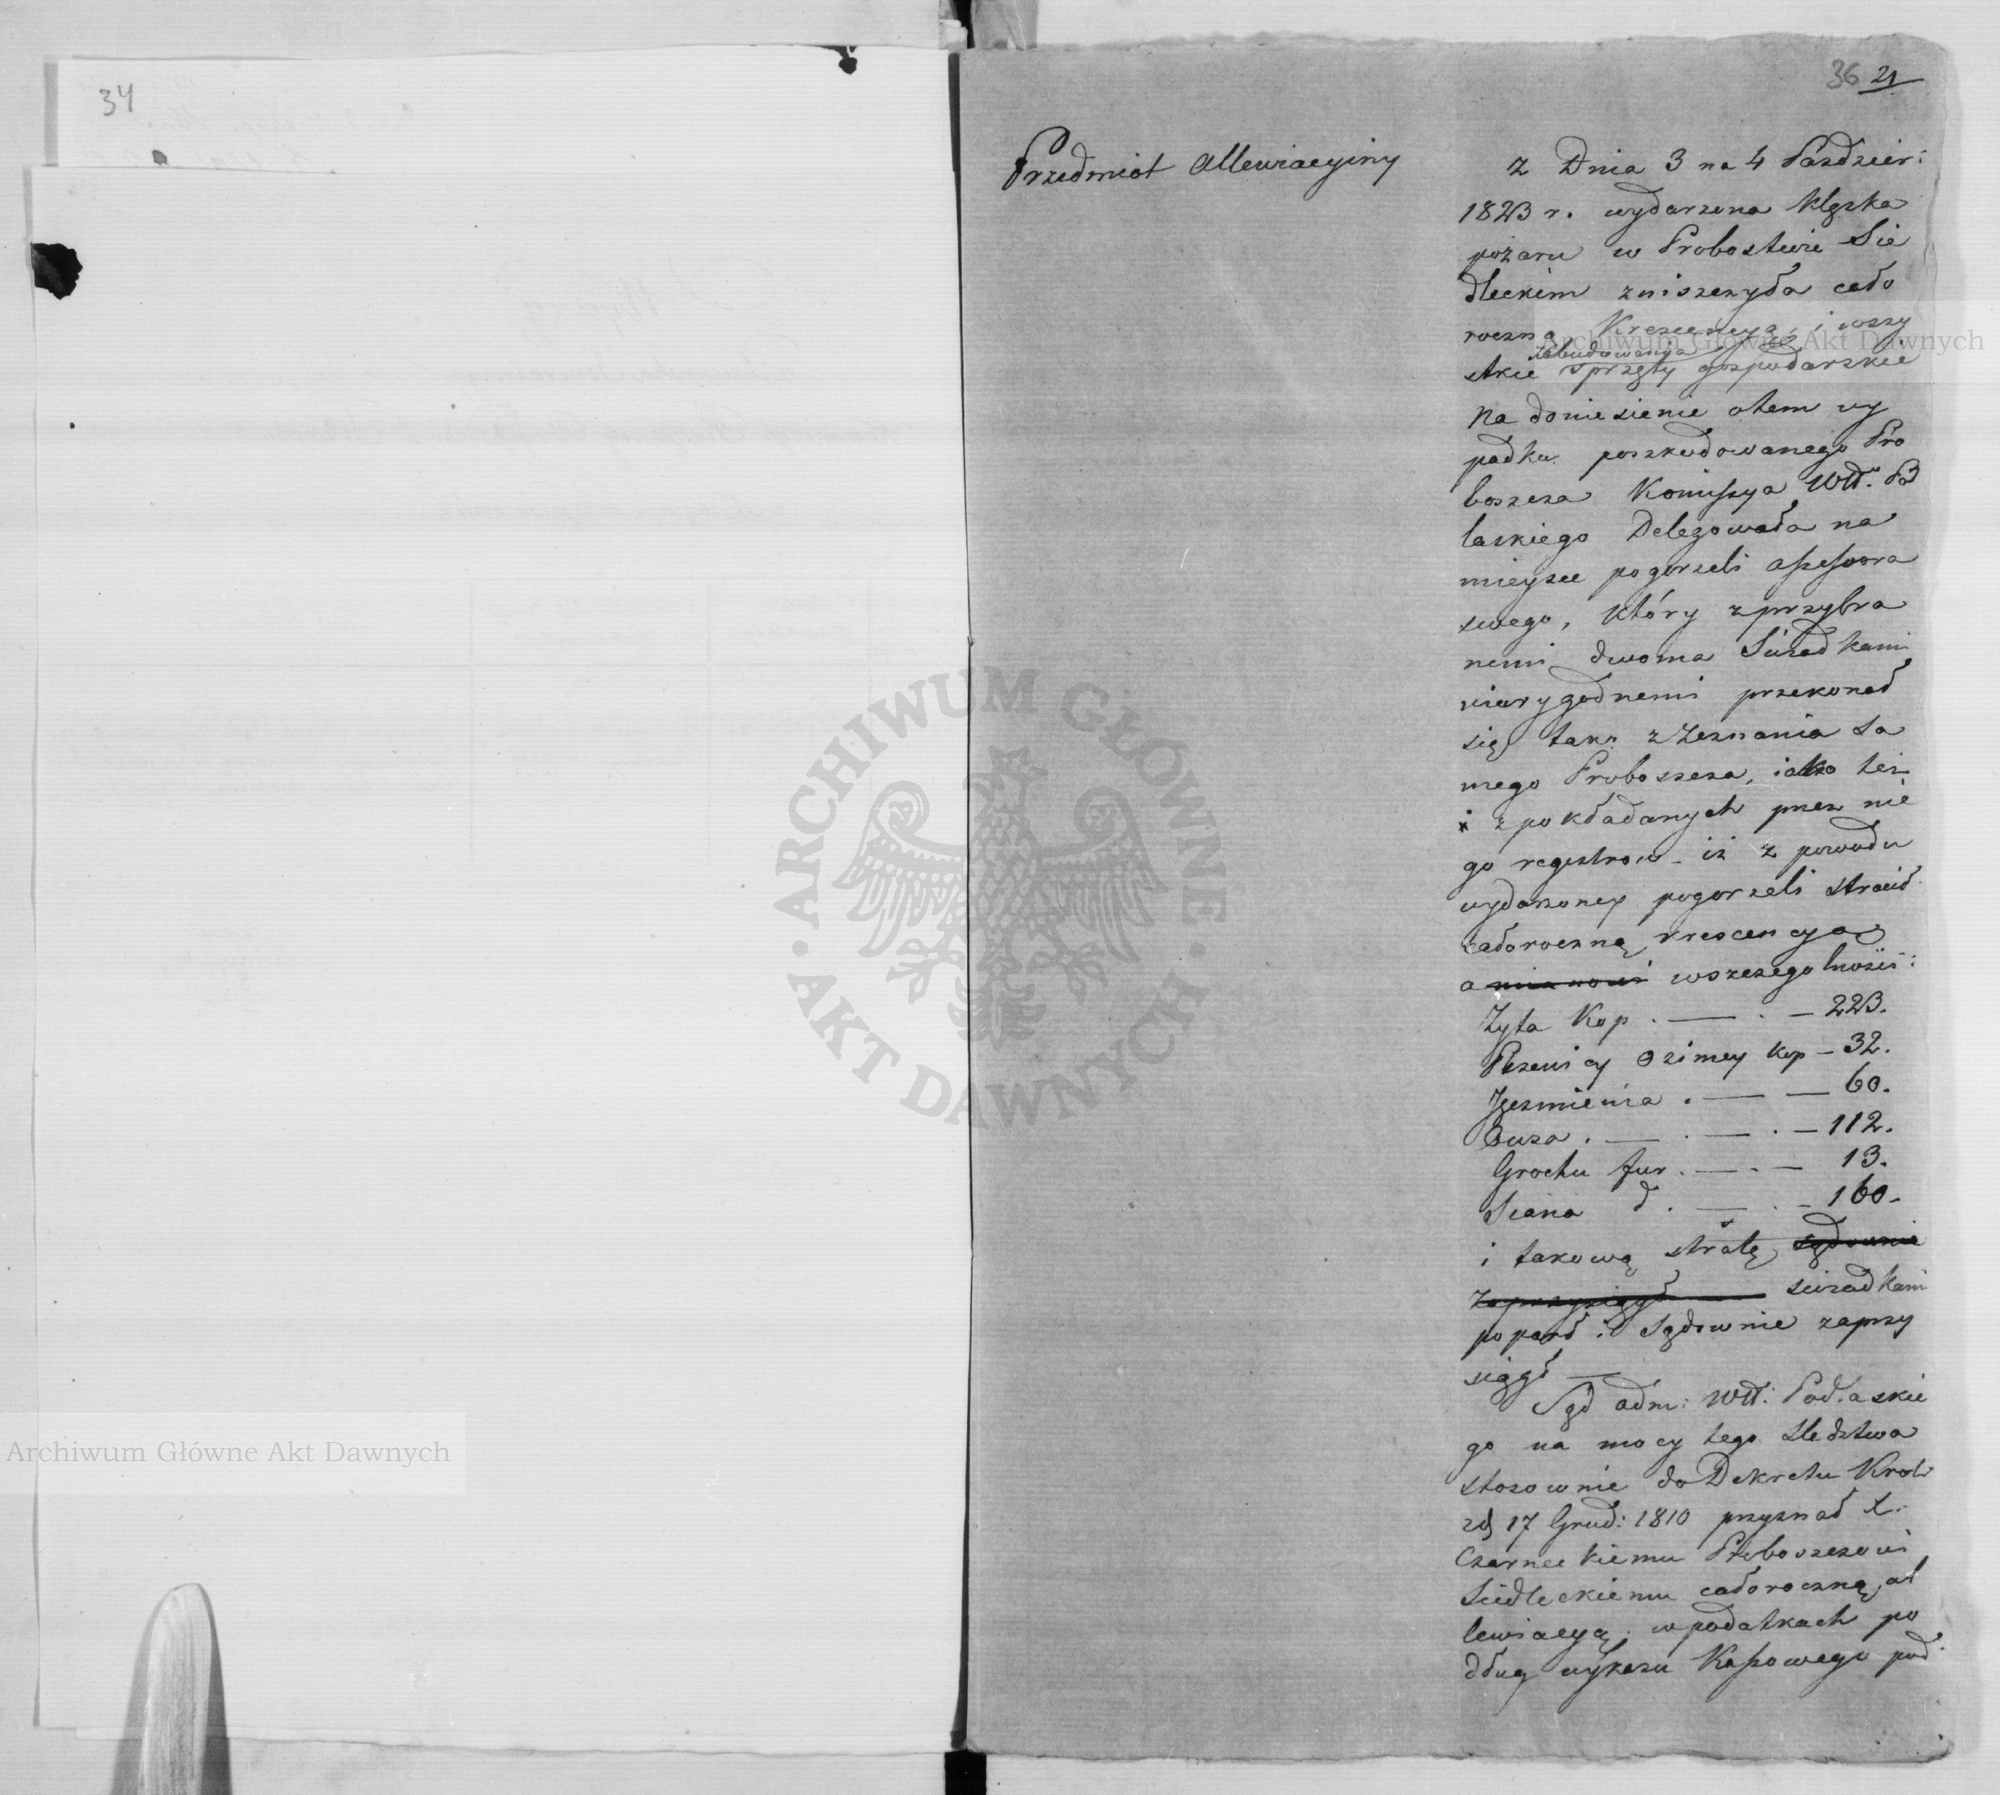 34
36 21
Przedmiot Allewiacyiny
Z Dnia 3 na 4 Pazdzier:
1823 r. wydarzona klęska
pożaru w Probostwie Sie
dleckim zniszczyła cało
roczną Krescencyą, i wszy
zabudowania
stkie sprzęty gospodarskie
Na doniesienie otem wy
padku poszkodowanego Pro
boszcza Kommissya Wdt. Pod
laskiego Delegowała na
mieysce pogorzeli assessora
swego, który zprzybra
nemi dwoma Świadkami
wiarygodnemi przekonał
się tak z zeznania sa
mego Proboszcza, iako też
i z pokładanych przez nie
go regestrow iż z powodu
wydarzoney pogorzeli stracił
całoroczną krescencyą
a mianowi wszczegolności:
Żyta Kop . — . — 223.
Pszenicy Ozimey kop — 32.
Jęczmienia . — — 60.
Owsa . — . — . — 112.
Grochu fur . — . — 13.
Siana d . — . — 160.
i takową stratę sądownie
zaprzysiągł — swiadkami
poparł i Sądownie zaprzy
siągł —
Sąd adm: Wdt: Podlaskie
go na mocy tego sledztwa
stosownie do Dekretu Krol:
zd 17 Grud: 1810 przyznał X.
Czarneckiemu Proboszczowi
Siedleckiemu całoroczną al
lewiacyą w podatkach po
dług wykazu Kassowego pod
Archiwum Główne Akt Dawnych
Archiwum Główne Akt Dawnych
ARCHIWUM GŁÓWNE · AKT DAWNYCH ·